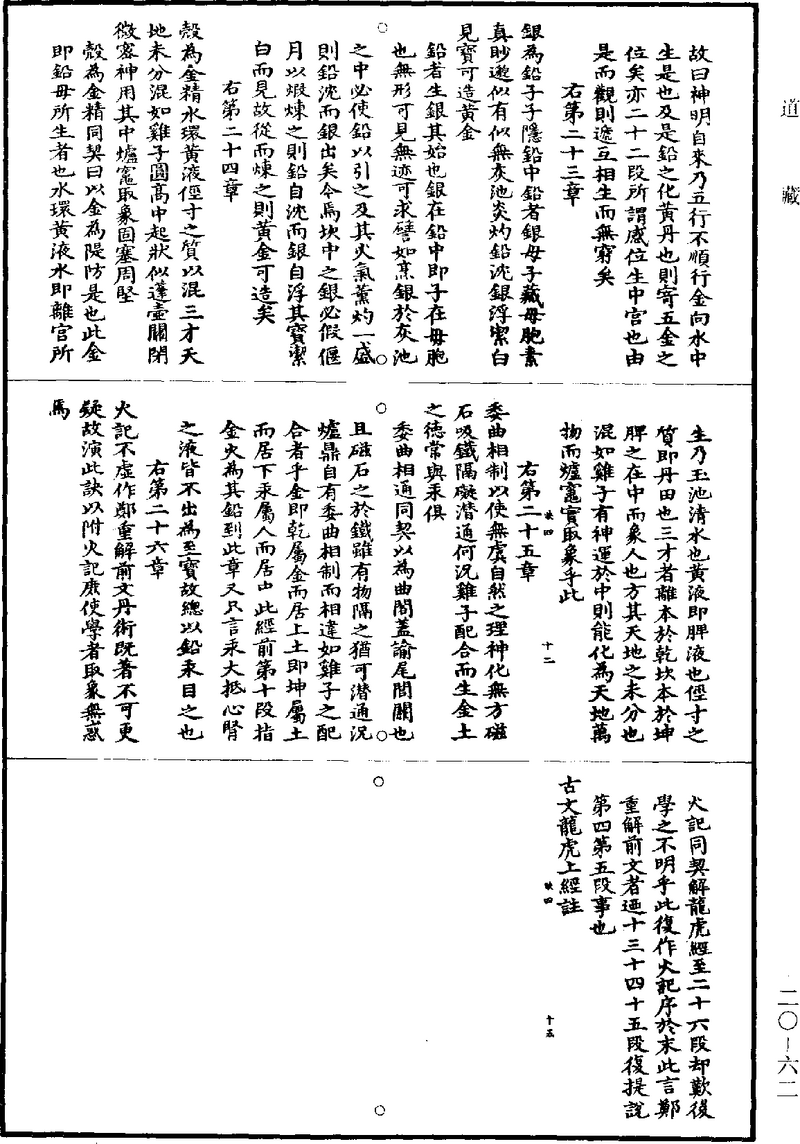 道藏
故曰神明自來乃五行不順行金向水中
生是也及是鉛之化黃丹也則寄五金之
位矣亦二十二段所謂感位生中宮也由
是而觀則遞互相生而無窮矣
右第二十三章
銀為鉛子子隱鉛中鉛者銀母子藏母胞素
真眇邈似有似無灰池炎灼鉛沈銀浮潔白
見寶可造黃金
鉛者生銀其始也銀在鉛中即子在母胞
也無形可見無迹可求譬如烹銀於灰池
之中必使鉛以引之及其火氣薰灼一盛
則鉛沈而銀出矣今焉坎中之銀必假偃
月以煅煉之則鉛自沈而銀自浮其寶潔
白而見故從而煉之則黃金可造矣
右第二十四章
殼為金精水環黃液徑寸之質以混三才天
地未分混如雞子圓高中起狀似蓬壺關閉
微密神用其中爐竈取象固塞周堅
殼為金精同契曰以金為隄防是也此金
即鉛母所生者也水環黃液水即離宮所
生乃玉池清水也黃液即脾液也徑寸之
質即丹田也三才者離本於乾坎本於坤
脾之在中而象人也方其天地之未分也
混如雞子有神運於中則能化為天地萬
物而爐竈實取象乎此
映四 十二
右第二十五章
委曲相制以使無虞自然之理神化無方磁
石吸鐵隔礙潛通何況雞子配合而生金土
之德常與汞俱
委曲相通同契以為曲閣蓋諭尾閭關也
且磁石之於鐵雖有物隔之猶可潛通況
爐鼎自有委曲相制而相違如雞子之配
合者乎金即乾屬金而居上土即坤屬土
而居下汞屬人而居中此經前第十段指
金火為其鉛到此章又只言汞大抵心腎
之液皆不出為至寶故總以鉛汞目之也
右第二十六章
火記不虛作鄭重解前文丹術既著不可更
疑故演此訣以附火記庶使學者取象無惑
焉
火記同契解龍虎經至二十六段却歎後
學之不明乎此復作火記序於末此言鄭
重解前文者迺十三十四十五段復提說
第四第五段事也
映四 十三
古文龍虎上經註
二〇-六二